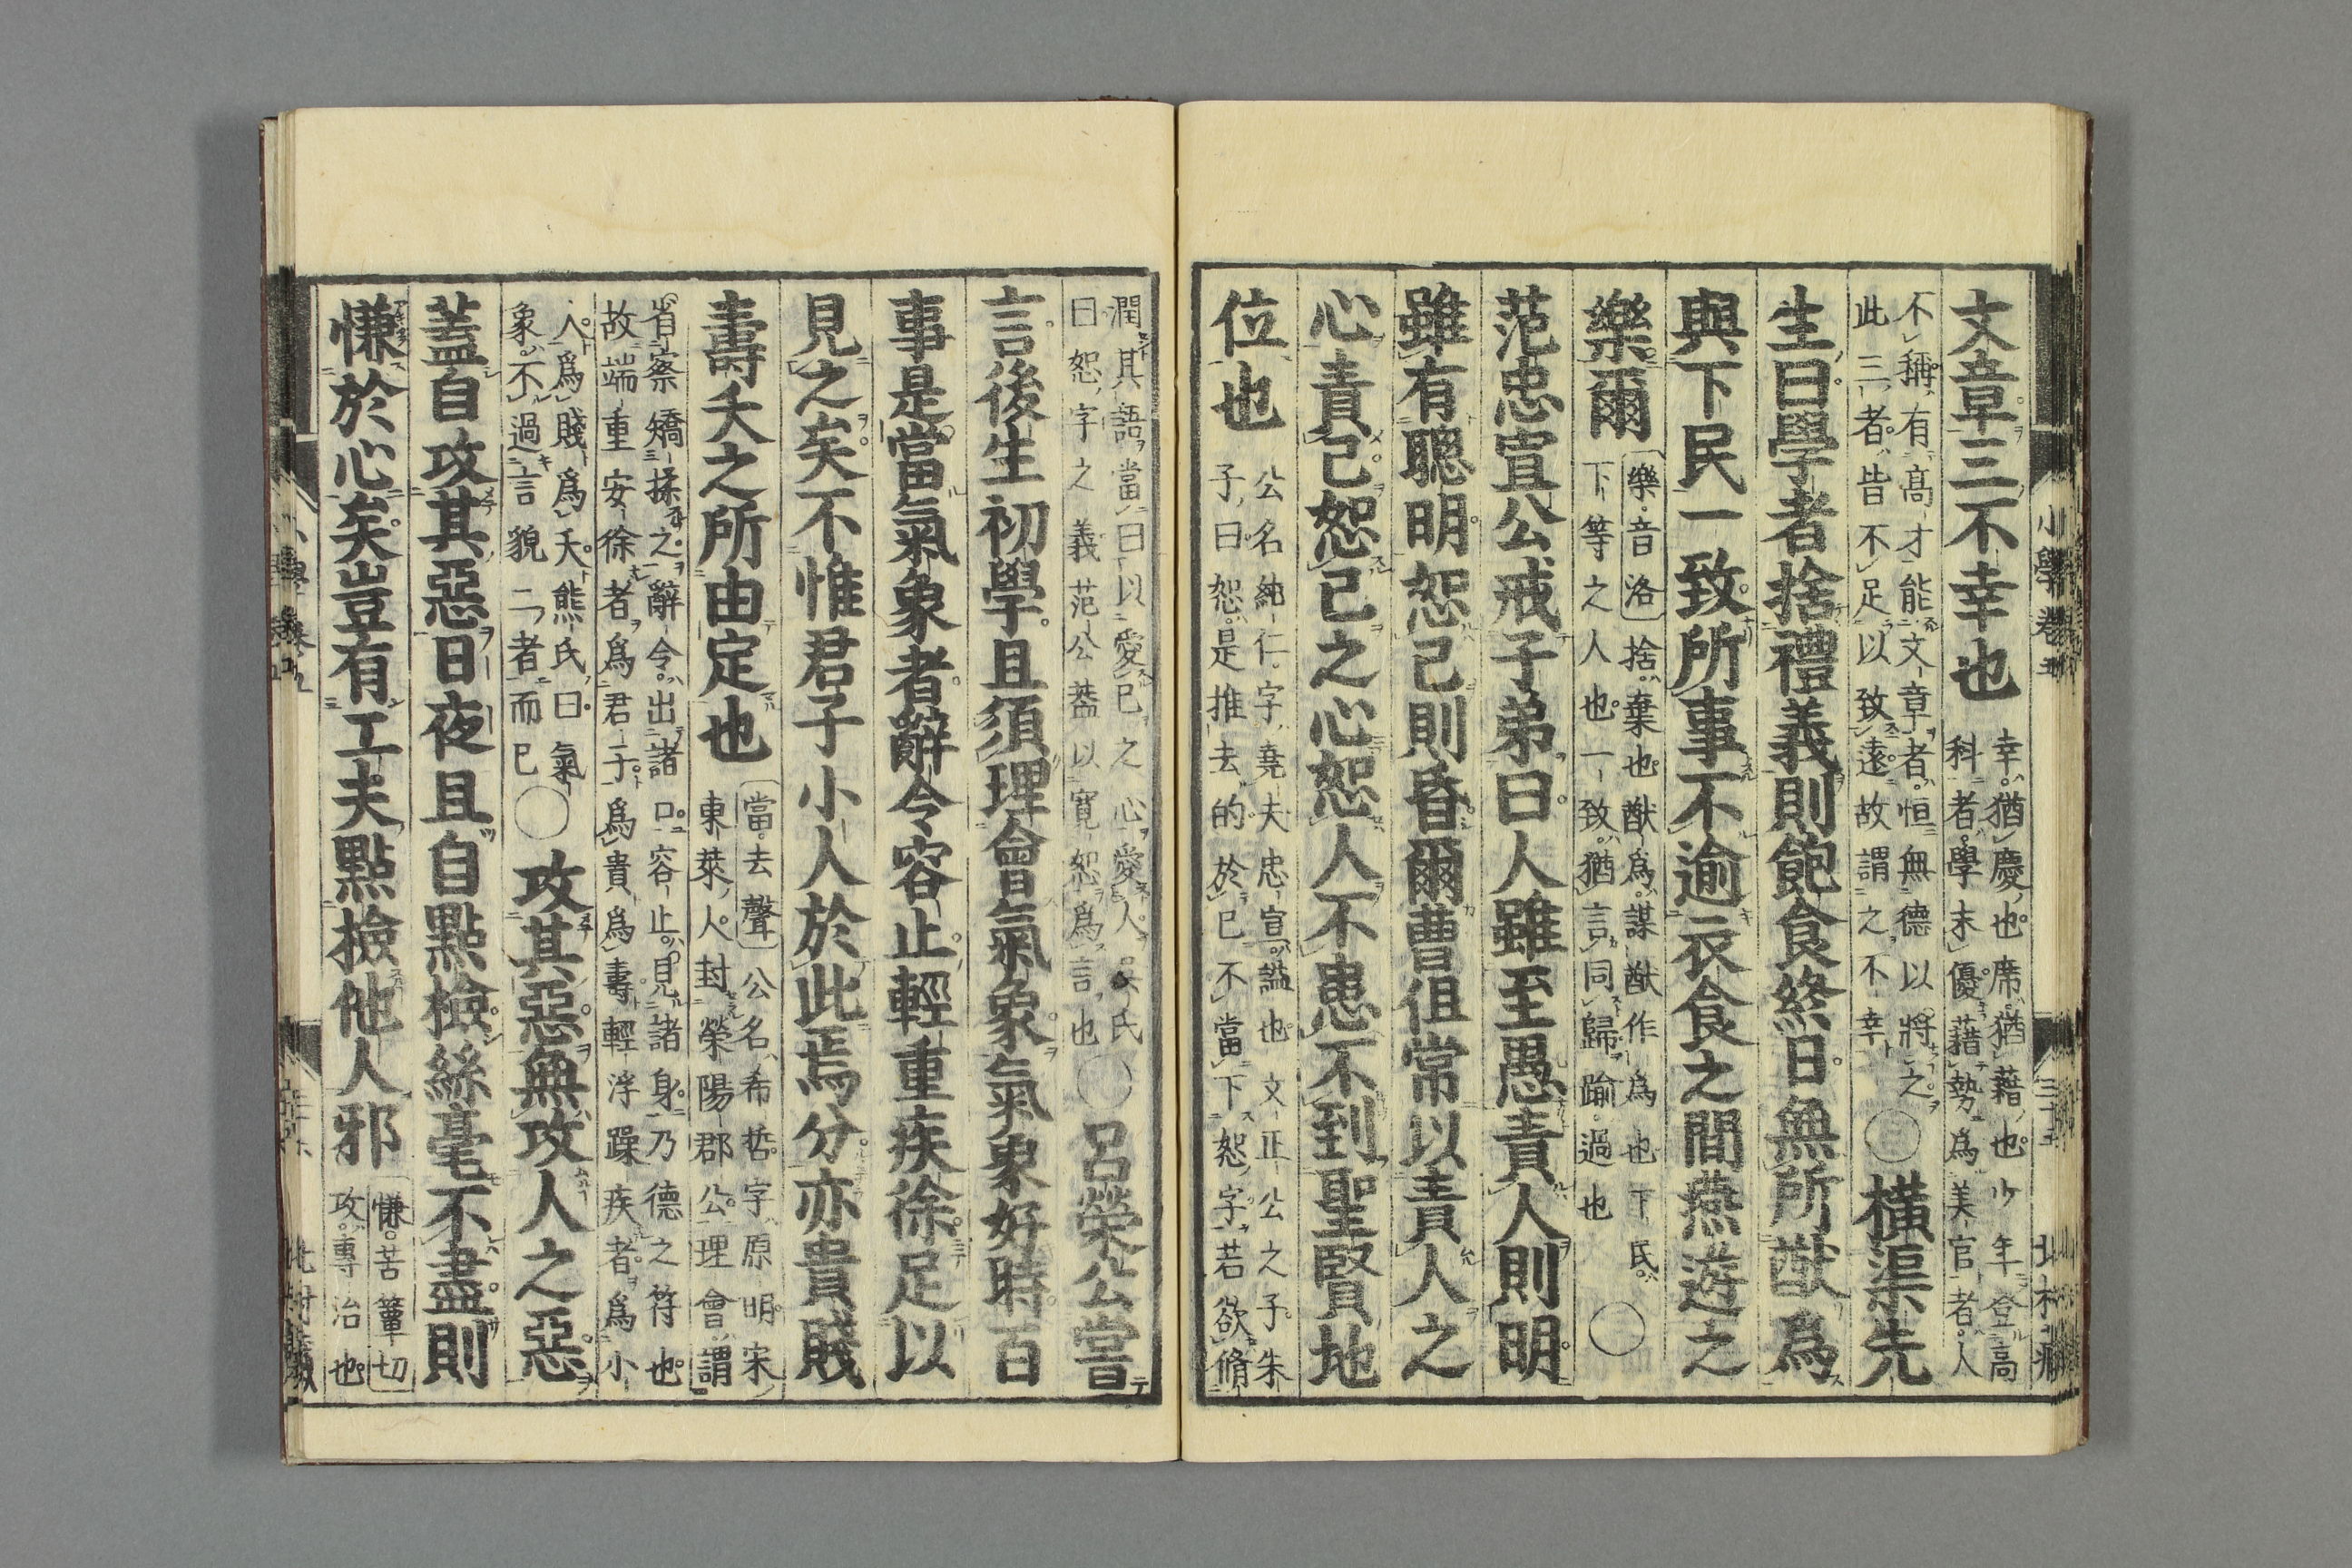 文章三不幸也
幸猶慶也席猶藉也少年登高
科者學未優藉勢為美官者人
不稱有高才能文章者恒無德以將之
此三者皆不足以致遠故謂之不幸
○橫渠先
生曰學者捨禮義則飽食終日無所猷為
與下民一致所事不逾衣食之間燕遊之
樂爾
樂音洛捨棄也猷為謀猷作為也下民
下等之人也一致猶言同歸踰過也
○
范忠宣公戒子弟曰人雖至愚責人則明
雖有聰明恕己則昏爾曹但常以責人之
心責己恕己之心恕人不患不到聖賢地
位也
公名純仁字堯夫忠宣謚也文正公之子朱
子曰恕是推去的於己不當下恕字若欲脩
小學卷五
三十五
潤其語當曰以愛己之心愛人吳氏
曰恕字之義范公蓋以寬恕為言也
○呂榮公嘗
言後生初學且須理會氣象氣象好時百
事是當氣象者辭令容止輕重疾徐足以
見之矣不惟君子小人於此焉分亦貴賤
壽夭之所由定也
當去聲公名希哲字原明宋
東萊人封榮陽郡公理會謂
省察矯揉之辭令出諸口容止見諸身乃德之符也
故端重安徐者為君子為貴為壽輕浮躁疾者為小
人為賤為夭熊氏曰氣
象不過言貌二者而已
○攻其惡無攻人之惡
蓋自攻其惡日夜且自點檢絲毫不盡則
慊於心矣豈有工夫點檢他人邪
慊苦簟切
攻專治也